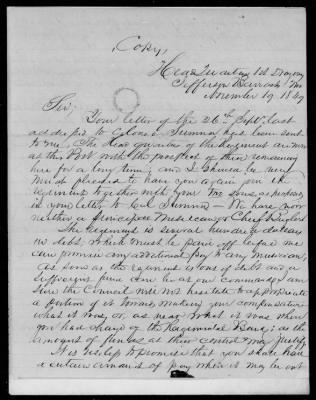 Copy,
Head Quarters 1st Dragoons
Jefferson Barracks Mo
November 19. 1849
Sir,
Your letter of the 26th Sept last
addressed to Colonel Sumner has been sent
to me. The Head quarters of the Regiment are now
at this Post with the prospect of their remaining
here for a long time; and I should be very
much pleased to have you again join the
regiment together with your
in your letter to Col Sumner - We have now
neither a principal Musician or Chief Bugler
The Regiment is several hundred dollars
in debt, which must be paid off before we
can promise any additional pay to any musician,
As soon as the regiment is out of debt and a
sufficient fund
the Council will not hesitate to appropriate
a portion of it towards making your compensation
what it was, or as near what it was when
you had charge of the Regimental Band; as the
amount of funds at their control may justify
It is useless to promise that you shall have
a certain amount of pay when it may be out